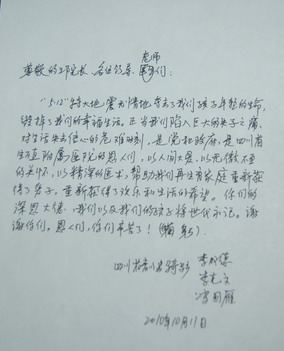 老师
尊敬的工作院长、各位领导、们:
"5.12"特大地震无情地夺去了我们孩子年轻的生命,
毁掉了我们的幸福生活。正当我们陷入巨大的丧子之痛、
对生活失去信心的危难时刻,是党和政府,是四川省
生殖附属医院的恩人们,以人间大爱,以无微不至
的关怀,以精湛的医术,帮助我们再生育家庭重新获
得了亲子。重新获得了欢乐和生活的希望。你们的
深恩大德,我们以及我们的孩子将世代永记。谢
谢你们。恩人们,你们辛苦了!(鞠躬)
四川省
2010年10月11日